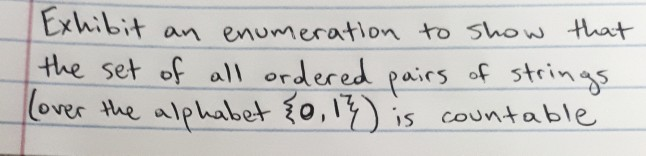 Exhibit an enumeration to show that
the set of all ordered pairs of strings
(over the alphabet {0,1}) is countable